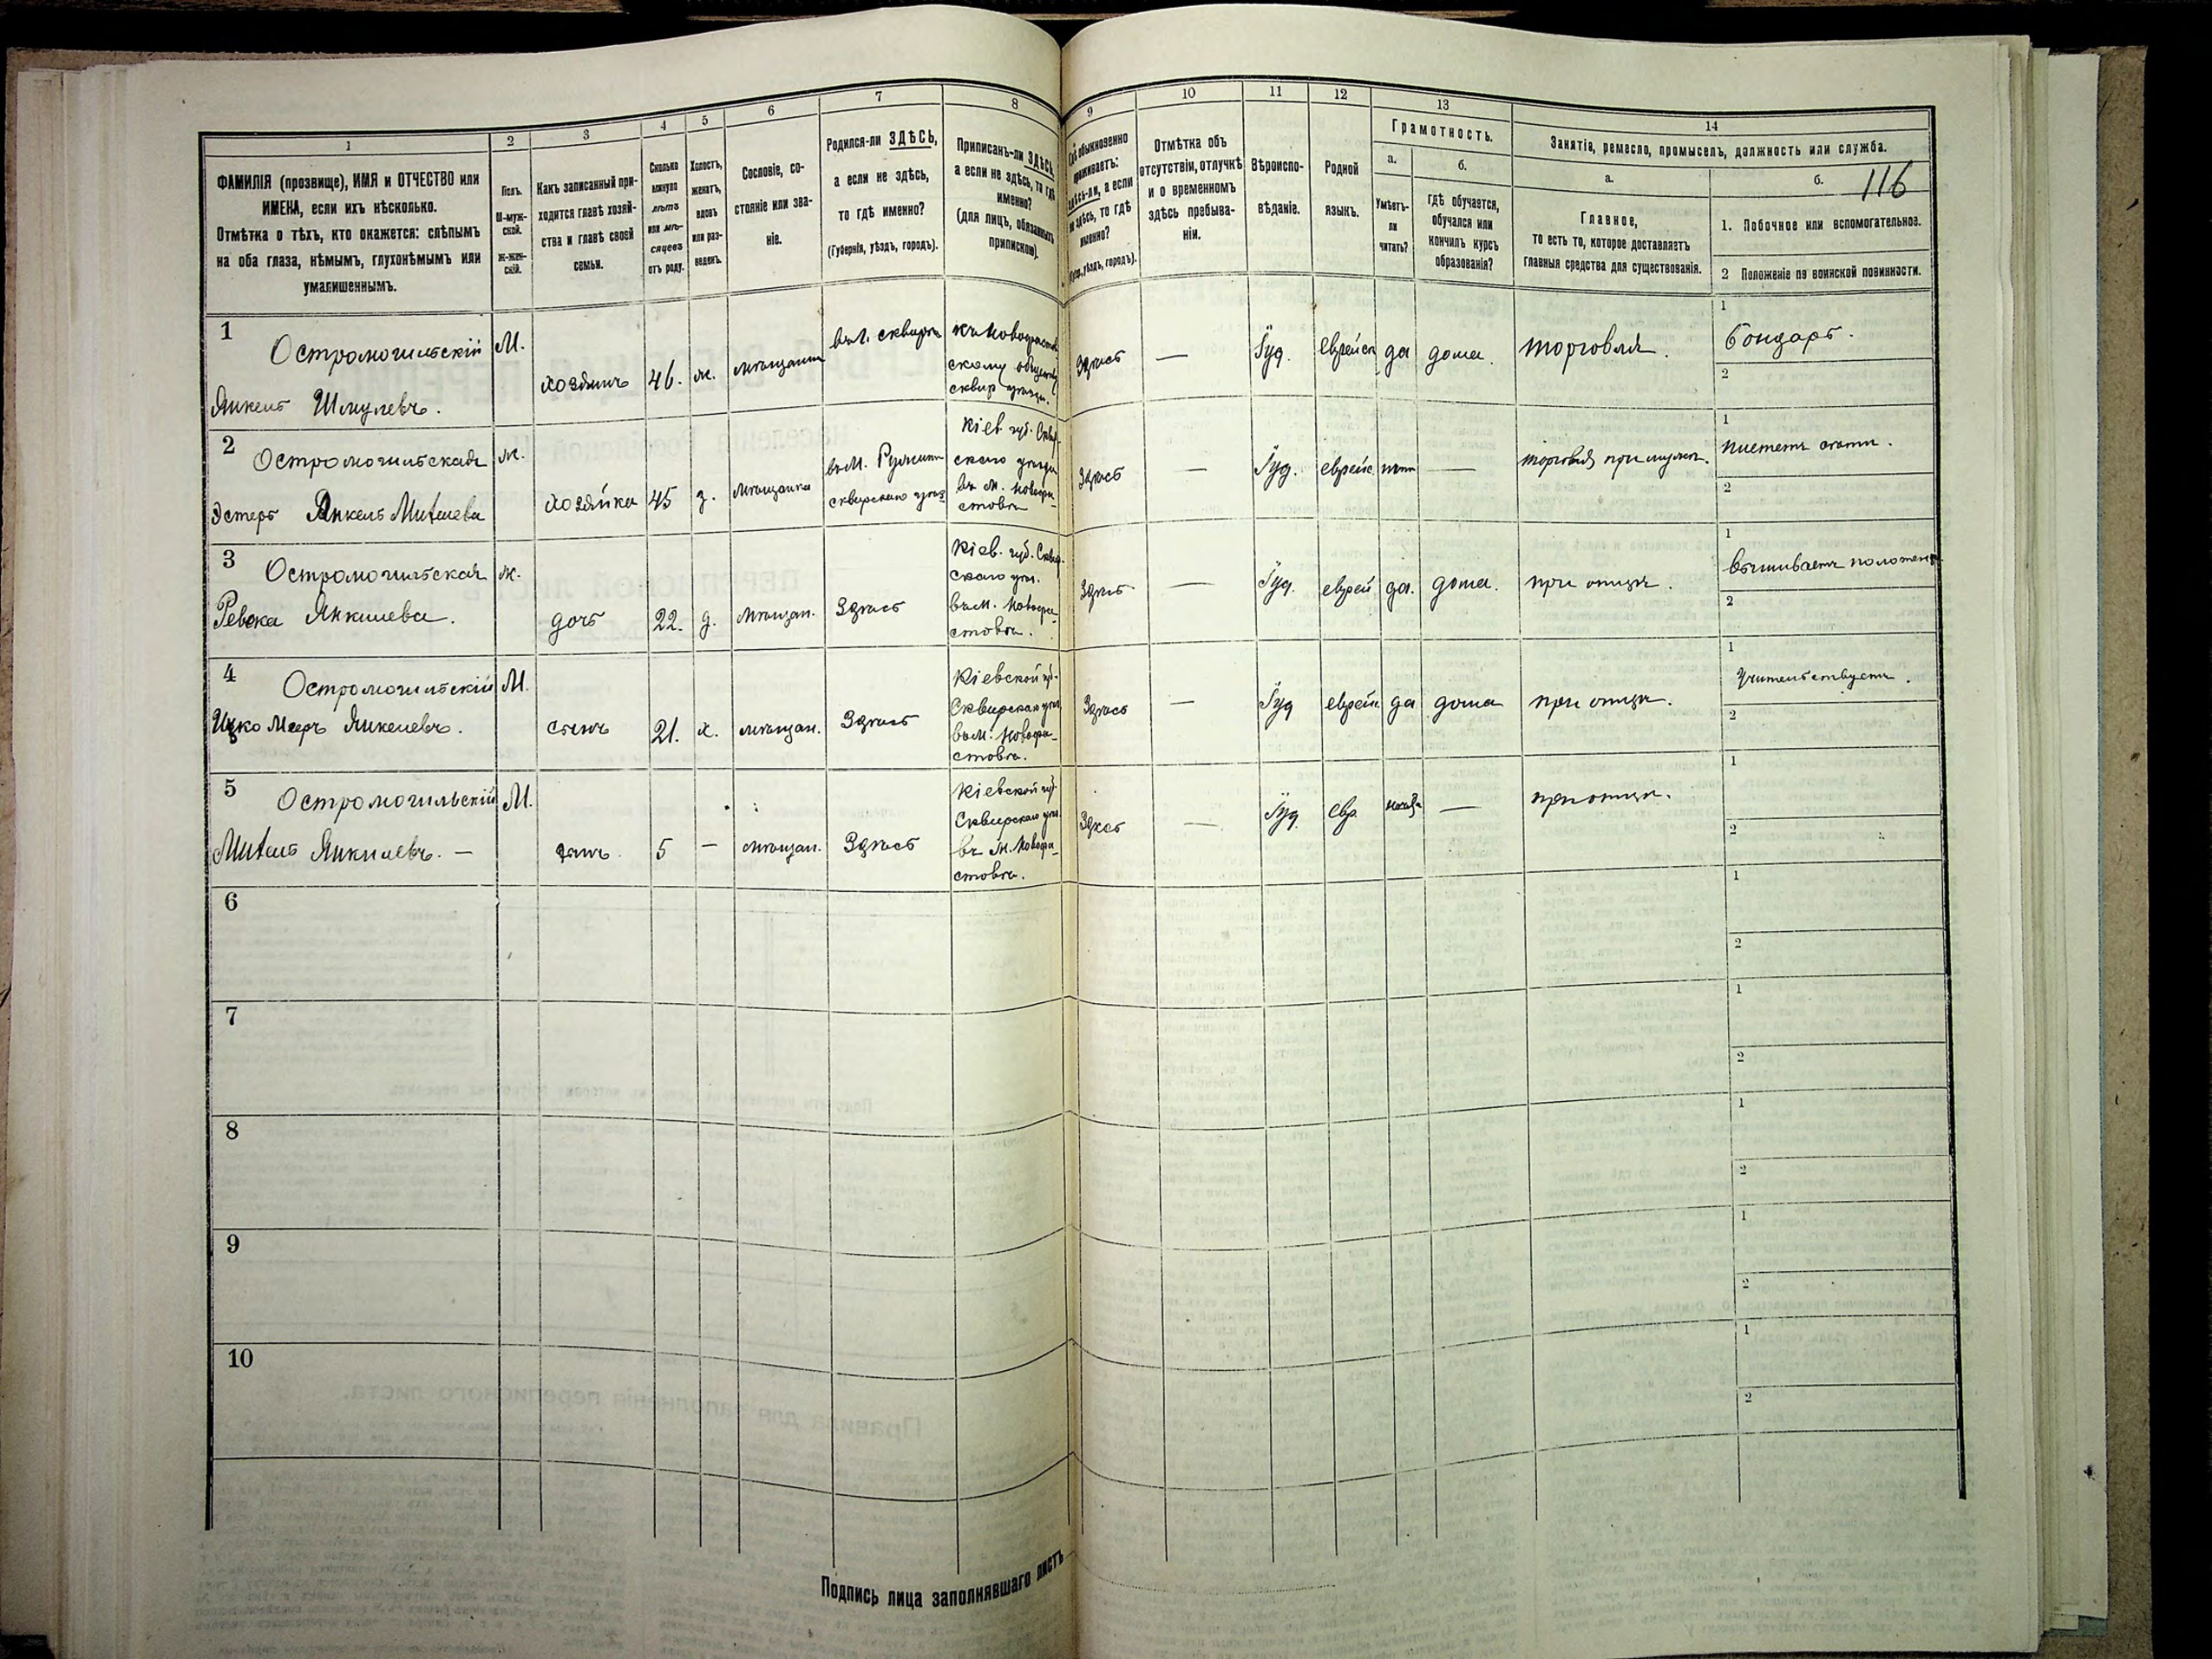 1
2
3
4
5
6
7
8
9
10
11
12
13
14
ФАМИЛІЯ (прозвище), ИМЯ и ОТЧЕСТВО или
ИМЕНА, если ихъ нѣсколько.
Отмѣтка о тѣхъ, кто окажется: слѣпымъ
на оба глаза, нѣмымъ, глухонѣмымъ или
умалишеннымъ.
Полъ.
М-муж-
ской.
Ж-жен-
скій.
Какъ записанный при-
ходится главѣ хозяй-
ства и главѣ своей
семьи.
Сколько
минуло
лѣтъ
или мѣ-
сяцевъ
отъ роду.
Холостъ,
женатъ,
вдовъ
или раз-
веденъ.
Сословіе, со-
стояніе или зва-
ніе.
Родился-ли ЗДѢСЬ,
а если не здѣсь,
то гдѣ именно?
(Губернія, уѣздъ, городъ).
Приписанъ-ли ЗДѢСЬ,
а если не здѣсь, то гдѣ
именно?
(для лицъ, обязанныхъ
припискою).
обыкновенно
проживаетъ:
здѣсь-ли, а если
не здѣсь, то гдѣ
именно?
уѣздъ, городъ).
Отмѣтка объ
отсутствіи, отлучкѣ
и о временномъ
здѣсь пребыва-
ніи.
Вѣроиспо-
вѣданіе.
Родной
языкъ.
Грамотность.
а.
Умѣетъ-
ли
читать?
б.
гдѣ обучается,
обучался или
кончилъ курсъ
образованія?
Занятія, ремесло, промыселъ, должность или служба.
а.
Главное,
то есть то, которое доставляетъ
главныя средства для существованія.
б.
116
1. Побочное или вспомогательное.
2 Положеніе по воинской повинности.
1
Остромогильскій
Янкель Шмулевъ.
М.
хозяинъ
46.
ж.
мѣщанин
къ Новофастов
скому обществу
сквир уѣзда.
Здѣсь
—
Іуд.
еврейск
да
дома.
торговля.
1
Бондарь.
2
2
Остромогильская
Эстеръ Янкель
ж.
хозяйка
45
з.
мѣщанка
въ м. Ружинѣ
сквирскаго уѣз
Кіев. губ. Сквир-
скаго уѣзда
въ м. Новофа-
стовѣ
Здѣсь
—
Іуд.
еврейс.
нѣтъ
—
1
2
3
Остромогильская
Ревека Янкилева.
ж.
дочь
22.
д.
мѣщан.
Здѣсь
Кіев. губ. Сквир-
скаго уѣз.
въ м. Новофа-
стовѣ.
Здѣсь
—
Іуд.
еврей
да.
дома.
при отцѣ.
1
2
4
Остромогильскій
Ицко Мееръ Янкелевъ.
М.
сынъ
21.
х.
мѣщан.
Здѣсь
Кіевской губ.
Сквирскаго уѣз
въ м. Новофа-
стовѣ.
Здѣсь
—
Іуд
еврей
да
дома
при отцѣ.
1
Учительствуетъ.
2
5
Остромогильскій
Янкилевъ. —
М.
сынъ.
5
—
мѣщан.
Здѣсь
Кіевской губ
Сквирскаго уѣз.
въ м. Новофа-
стовѣ.
Здѣсь
—
Іуд.
евр.
—
при отцѣ.
1
2
6
1
2
7
1
2
8
1
2
9
1
2
10
1
2
Подпись лица заполнявшаго листъ